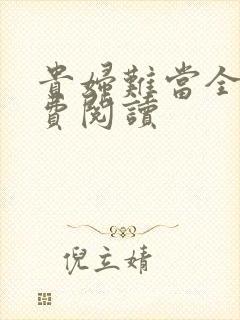 貴婦難當全
費閱讀
倪立婧